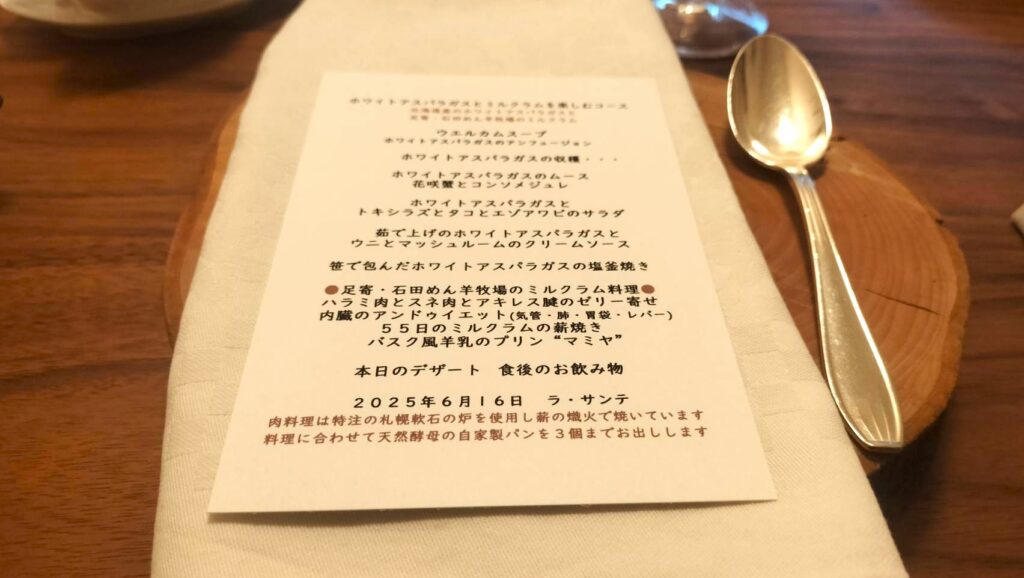 ホワイトアスパラガスとミルクラムを楽しむコース
北海道産のホワイトアスパラガスと
足寄・石田めん羊牧場のミルクラム
ウエルカムスープ
ホワイトアスパラガスのアンフュージョン
ホワイトアスパラガスの収穫・・・
ホワイトアスパラガスのムース
花咲蟹とコンソメジュレ
ホワイトアスパラガスと
トキシラズとタコとエゾアワビのサラダ
茹で上げのホワイトアスパラガスと
ウニとマッシュルームのクリームソース
笹で包んだホワイトアスパラガスの塩釜焼き
●足寄・石田めん羊牧場のミルクラム料理●
ハラミ肉とスネ肉とアキレス腱のゼリー寄せ
内臓のアンドゥイエット(気管・肺・胃袋・レバー)
５５日のミルクラムの薪焼き
バスク風羊乳のプリン“マミヤ”
本日のデザート　食後のお飲み物
２０２５年６月１６日　ラ・サンテ
肉料理は特注の札幌軟石の炉を使用し薪の熾火で焼いています
料理に合わせて天然酵母の自家製パンを３個までお出しします